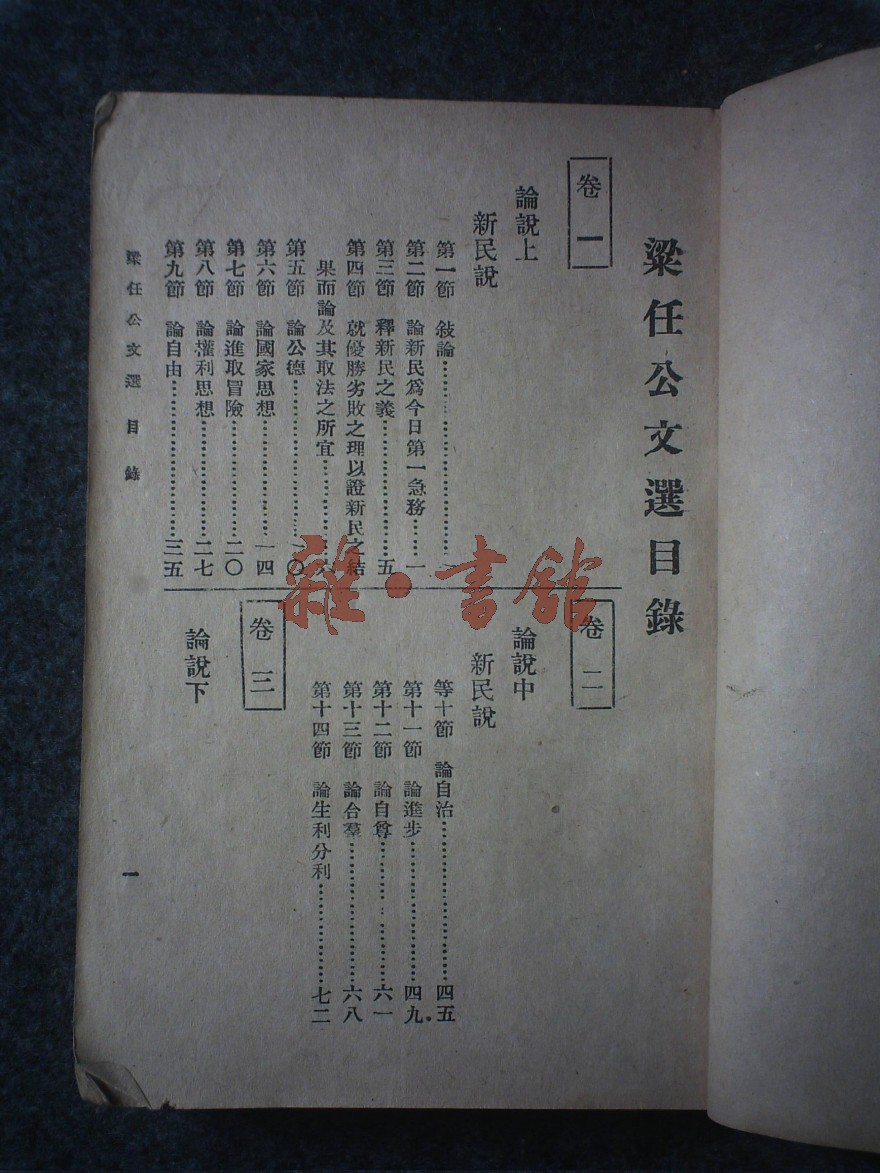 梁任公文選目錄
卷一
論說上
新民說
第一節　敍論……………………一
第二節　論新民爲今日第一急務……一
第三節　釋新民之義………………五
第四節　就優勝劣敗之理以證新民之結
果而論及其取法之所宜…………六
第五節　論公德…………………一〇
第六節　論國家思想……………一四
第七節　論進取冒險……………二〇
第八節　論權利思想……………二七
第九節　論自由…………………三五
卷二
論說中
新民說
等十節　論自治…………………四五
第十一節　論進步………………四九
第十二節　論自尊………………六一
第十三節　論合羣………………六八
第十四節　論生利分利…………七二
卷三
論說下
梁任公文選　目錄
一
雜·書館